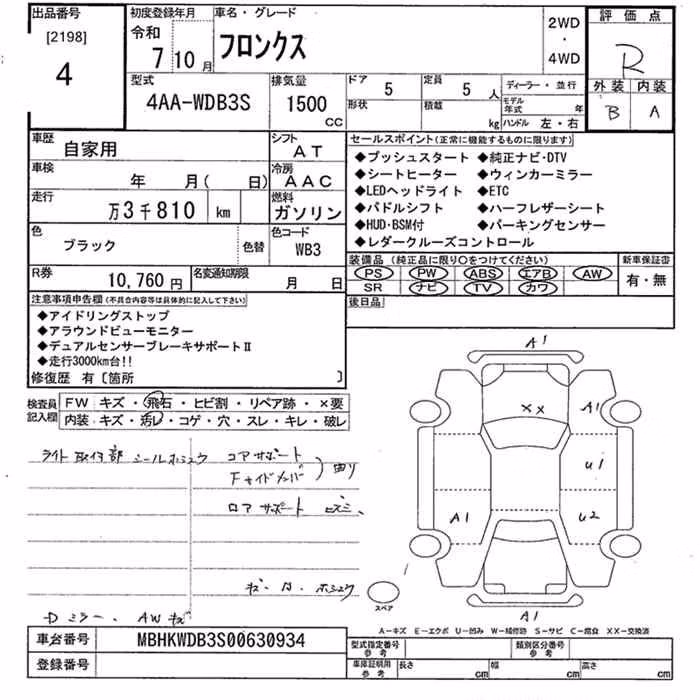 出品番号
[2198]
4
初度登録年月
令和
7 10月
車名・グレード
フロンクス
2WD
・
4WD
評価点
R
外装 内装
B A
型式
4AA-WDB3S
排気量
1500
CC
ドア
5
定員
5 人
形状
積載
kg
ディーラー・並行
モデル年式 年
ハンドル 左・右
車歴
自家用
シフト
AT
車検
年 月( 日)
冷房
AAC
走行
万3千810 km
燃料
ガソリン
色
ブラック
色替
色コード
WB3
R券
10,760 円
名変通知期限
月 日
セールスポイント(正常に機能するものに限ります)
◆プッシュスタート ◆純正ナビ・DTV
◆シートヒーター ◆ウィンカーミラー
◆LEDヘッドライト ◆ETC
◆パドルシフト ◆ハーフレザーシート
◆HUD・BSM付 ◆パーキングセンサー
◆レダークルーズコントロール
装備品(純正品に限り○をつけてください)
PS PW ABS エアB AW
SR ナビ TV カワ
新車保証書
有・無
後日品
注意事項申告欄(不具合内容等は具体的に記入して下さい)
◆アイドリングストップ
◆アラウンドビューモニター
◆デュアルセンサーブレーキサポートⅡ
◆走行3000km台!!
修復歴 有〔箇所 〕
検査員
記入欄
FW キズ・飛石・ヒビ割・リペア跡・×要
内装 キズ・汚レ・コゲ・穴・スレ・キレ・破レ
ライト取付部 シールホシュウ
コアサポート
Fサイドメンバー
曲り
ロアサポート ヒズミ
キズ・凹・ホシュウ
Dミラー、AWキズ
A1
XX
A1
U1
A1
U2
A1
スペア
A−キズ E−エクボ U−凹み W−補修跡 S−サビ C−腐食 XX−交換済
車台番号
MBHKWDB3S00630934
登録番号
型式指定番号
参考
類別区分番号
参考
車庫証明用
参考
長さ cm
幅 cm
高さ cm